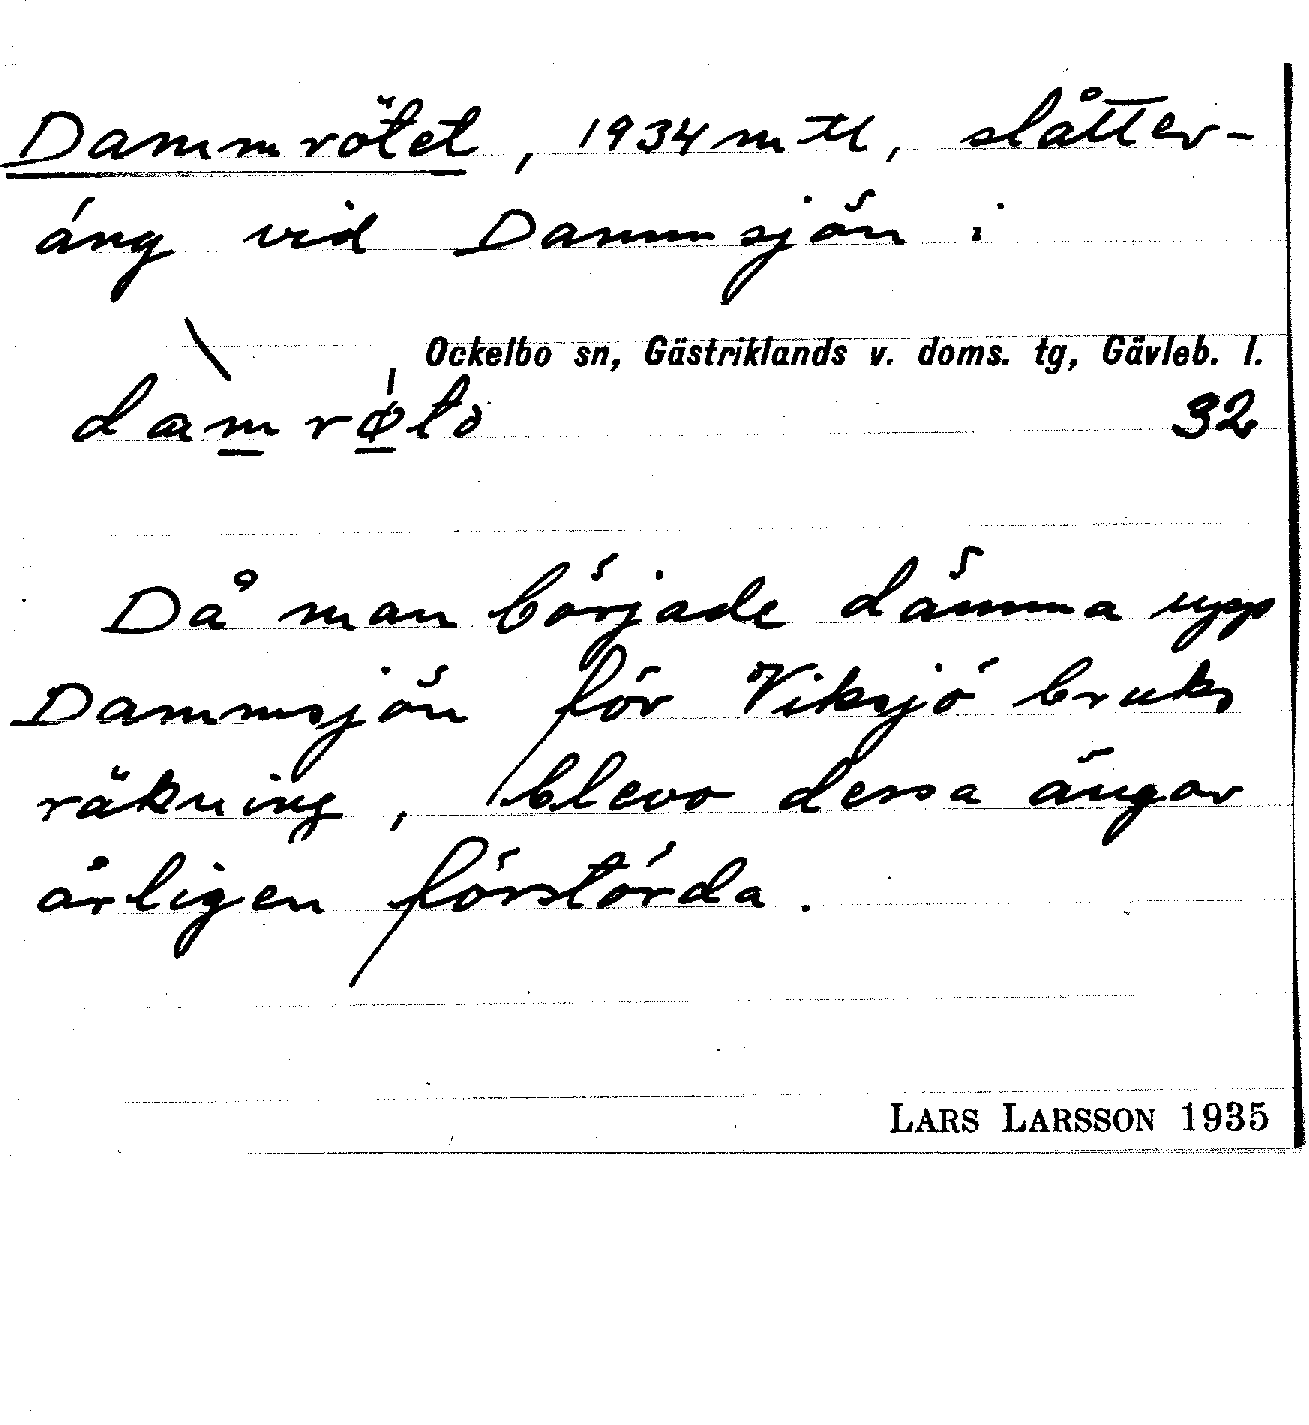 Dammrötet, 1934 mtl, slåtter-
äng vid Dammsjön i
Ockelbo sn, Gästriklands v. doms. tg, Gävleb. l.
32
Då man började dämma upp
Dammsjön för Viksjö bruks
räkning, blevo dessa ängar
årligen förstörda.
LARS LARSSON 1935